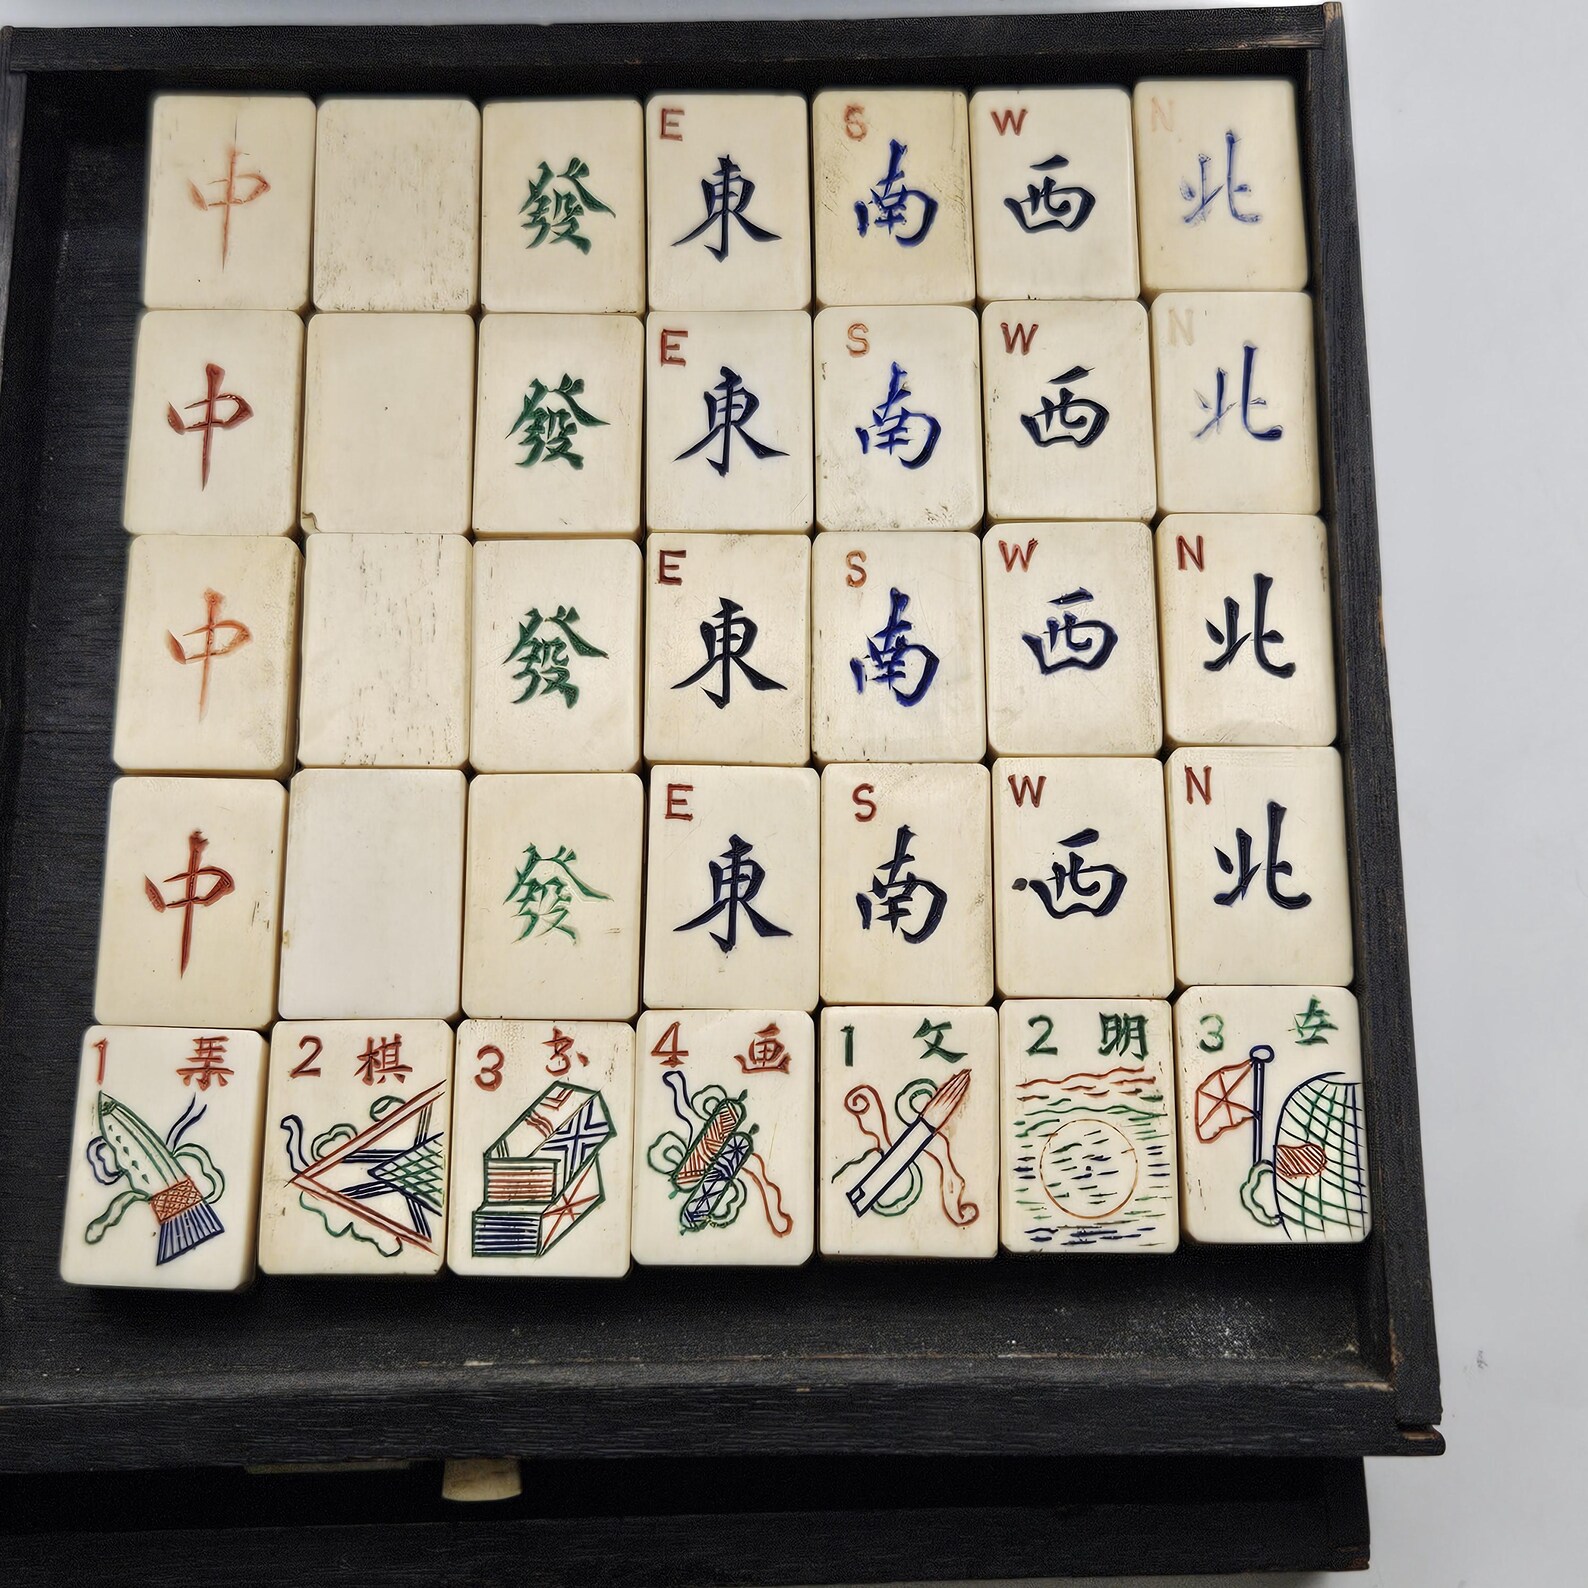 中 發 E 東 S 南 W 西 N 北
中 發 E 東 S 南 W 西 N 北
中 發 E 東 S 南 W 西 N 北
中 發 E 東 S 南 W 西 N 北
1 2 棋 3 4 画 1 文 2 明 3